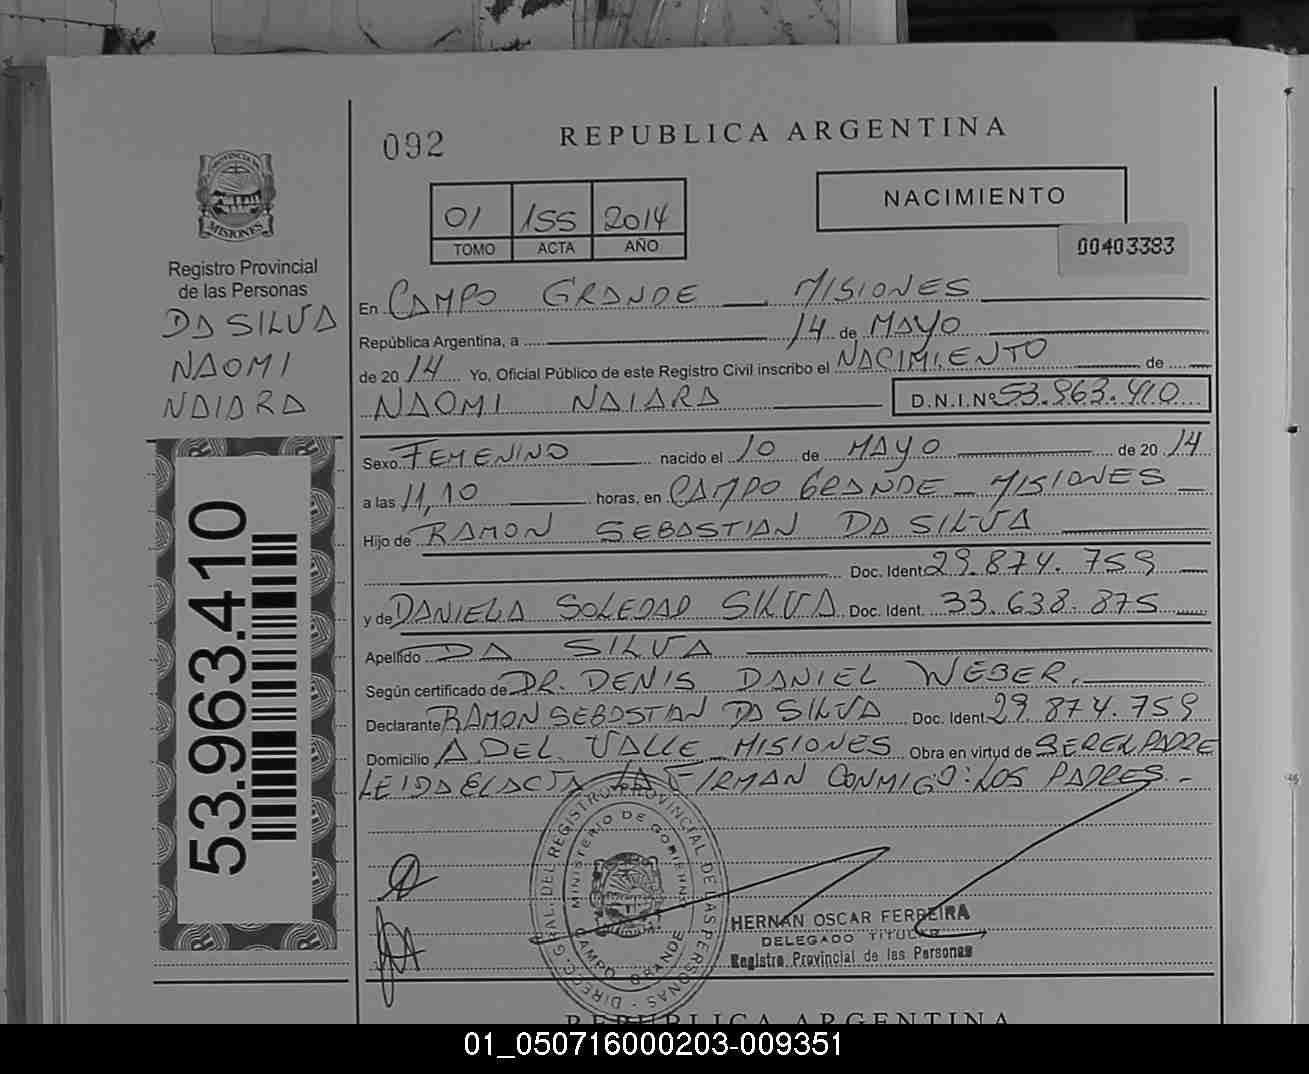 092
REPUBLICA ARGENTINA
01 155 2014
TOMO ACTA AÑO
NACIMIENTO
00403383
PROVINCIA DE
MISIONES
Registro Provincial
de las Personas
DA SILVA
NAOMI
NAIARA
53.963.410
En CAMPO GRANDE MISIONES
República Argentina, a 14 de MAYO
de 2014 Yo, Oficial Público de este Registro Civil inscribo el NACIMIENTO de
NAOMI NAIARA D.N.I.Nº 53.963.410
Sexo FEMENINO nacido el 10 de MAYO de 2014
a las 11,10 horas, en CAMPO GRANDE - MISIONES
Hijo de RAMON SEBASTIAN DA SILVA
Doc. Ident 29.874.759
y de DANIELA SOLEDAD SILVA Doc. Ident. 33.638.875
Apellido DA SILVA
Según certificado de DR. DENIS DANIEL WEBER.
Declarante RAMON SEBASTIAN DA SILVA Doc. Ident 29.874.759
Domicilio A. DEL VALLE - MISIONES Obra en virtud de SER EL PADRE
LEIDA EL ACTA LA FIRMAN CONMIGO: LOS PADRES.-
DIREC. GRAL. DEL REGISTRO PROVINCIAL DE LAS PERSONAS
MINISTERIO DE GOBIERNO
CAMPO GRANDE
HERNAN OSCAR FERREIRA
DELEGADO TITULAR
Registro Provincial de las Personas
REPUBLICA ARGENTINA
01_050716000203-009351